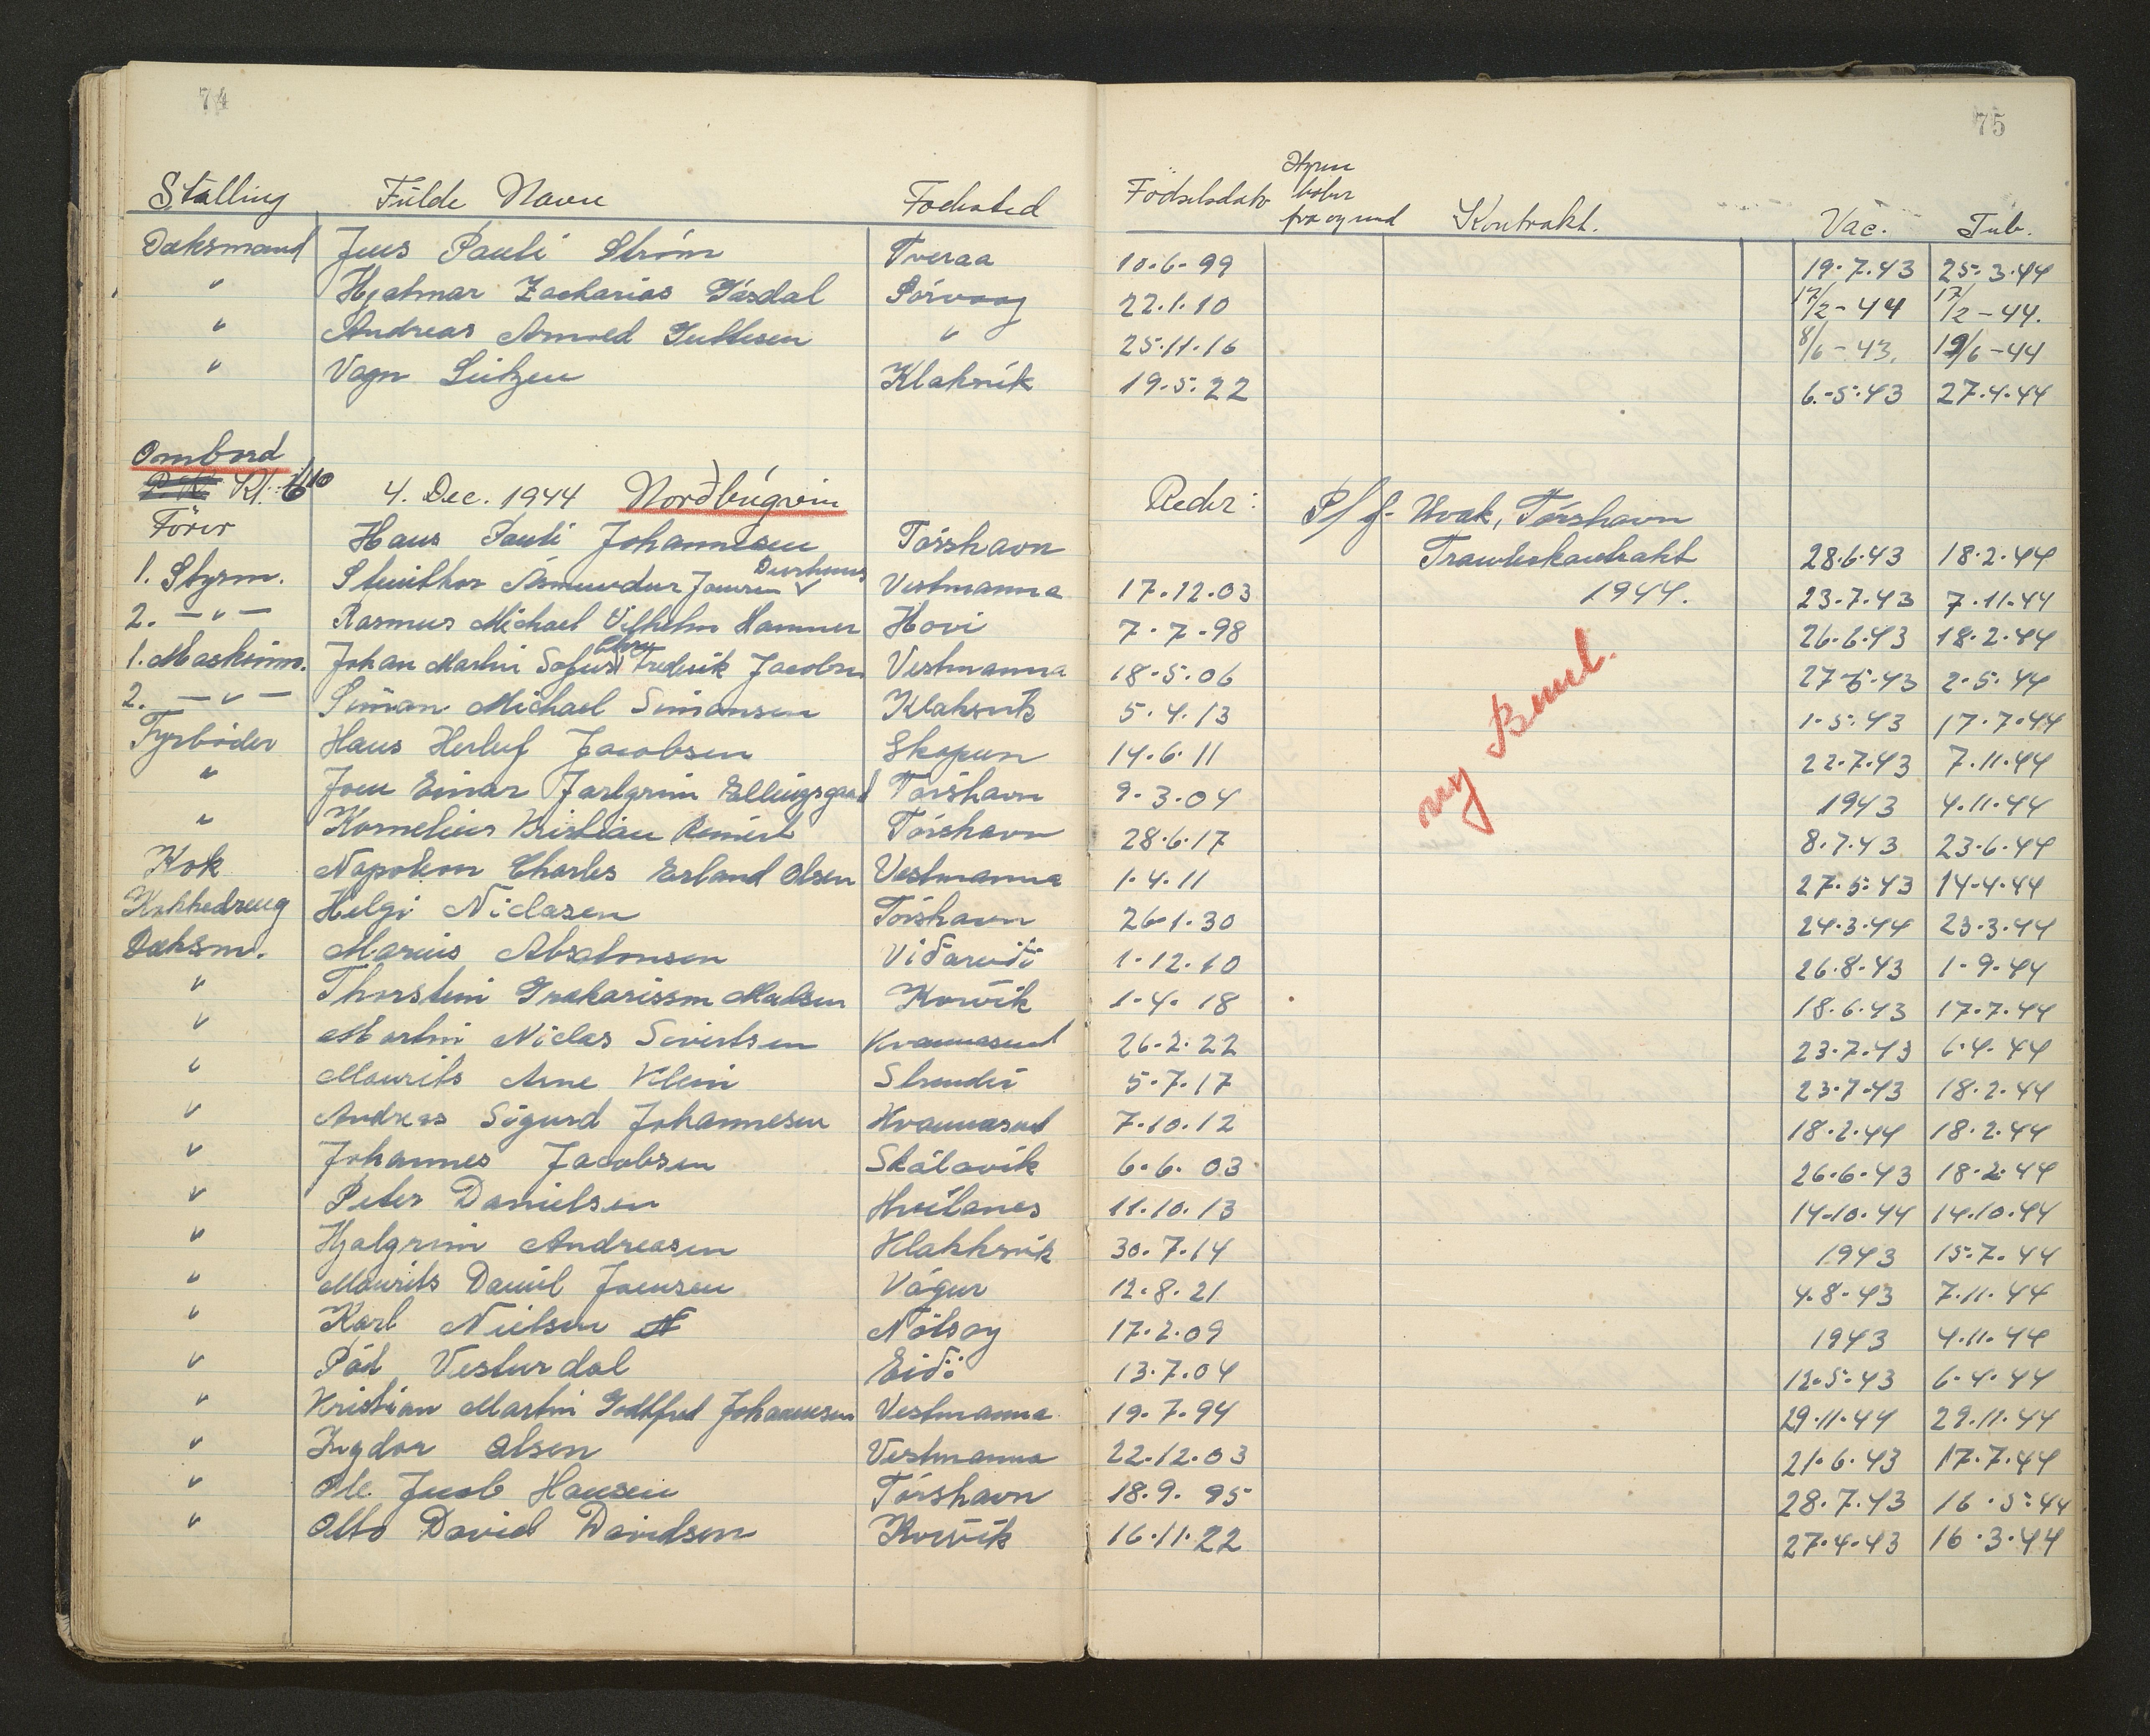 74
75
Stalling Fulde Navn Fodested Födselsdato Hyren bober fra og med Kontrakt. Vac. Tub.
Dæksmand Jens Pauli Ström Tveraa 10.6.99 19.7.43 25.3.44
" Hjalmar Zacharias Gásdal Sörvaag 22.1.10 17/2-44 17/2-44.
" Andreas Arnold Guttesen " 25.11.16 8/6-43. 19/6-44
" Vagn Lützen Klaksvik 19.5.22 6.-5.43 27.4.44
Ombord
Kl. 4. Dec. 1944 Nordbúgvin Reder: P/f. Hvak, Tórshavn
Förer Hans Pauli Johannesen Tórshavn Trawlerkontrakt 28.6.43 18.2.44
1. Styrm. Steinthor Ásmundur Joensen Durhuus Vestmanna 17.12.03 1944. 23.7.43 7.11.44
2. -"- Rasmus Michael Vilhelm Hammer Hovi 7.7-98 26.6.43 18.2.44
1. Maskinm. Johan Martin Sofus Chr. Frederik Jacobsen Vestmanna 18.5.06 27-5.43 2.5.44
2. -"- Simon Michael Simonsen Klaksvik 5.4.13 1.5.43 17.7.44
Fyrböder Hans Herluf Jacobsen Skopun 14.6.11 22.7.43 7.11.44
" Joen Einar Jarlgrim Ellingsgaard Tórshavn 9.3.04 1943 4.11.44
" Kornelius Kristian Reinert Tórshavn 28.6.17 8.7.43 23.6.44
ny Bemd.
Kok Napoleon Charles Erland Olsen Vestmanna 1.4.11 27.5.43 14.4.44
Kokkedreng Helgi Niclasen Tórshavn 26.1.30 24.3.44 23.3.44
Dæksm. Marius Absalonsen Vidareidi 1.12.10 26.8.43 1.9.44
" Thorstein Grækarisson Madsen Korvik 1.4.18 18.6.43 17.7.44
" Martin Niclas Sivertsen Kvannasund 26.2.22 23.7.43 6.4.44
" Mourits Arne Klein Strendur 5.7.17 23.7.43 18.2.44
" Andreas Sigurd Johannesen Hvannasund 7.10.12 18.2.44 18.2.44
" Johannes Jacobsen Skálavik 6.6.03 26.6.43 18.2.44
" Peter Danielsen Hvítanes 11.10.13 14.10.44 14.10.44
" Hjalgrim Andreasen Klakksvik 30.7.14 1943 15.7.44
" Mourits Daniel Joensen Vágur 12.8.21 4.8.43 7.11.44
" Karl Nielsen Nólsoy 17.2.09 1943 4.11.44
" Pól Vesturdal Eidi 13.7.04 12.5.43 6.4.44
" Kristian Martin Godtfred Johannesen Vestmanna 19.7.94 29.11.44 29.11.44
" Ingdor Olsen Vestmanna 22.12.03 21.6.43 17.7.44
" Ole Jacob Hansen Tórshavn 18.9.95 28.7.43 16.5.44
" Otto David Davidsen Korvik 16.11.22 27.4.43 16.3.44